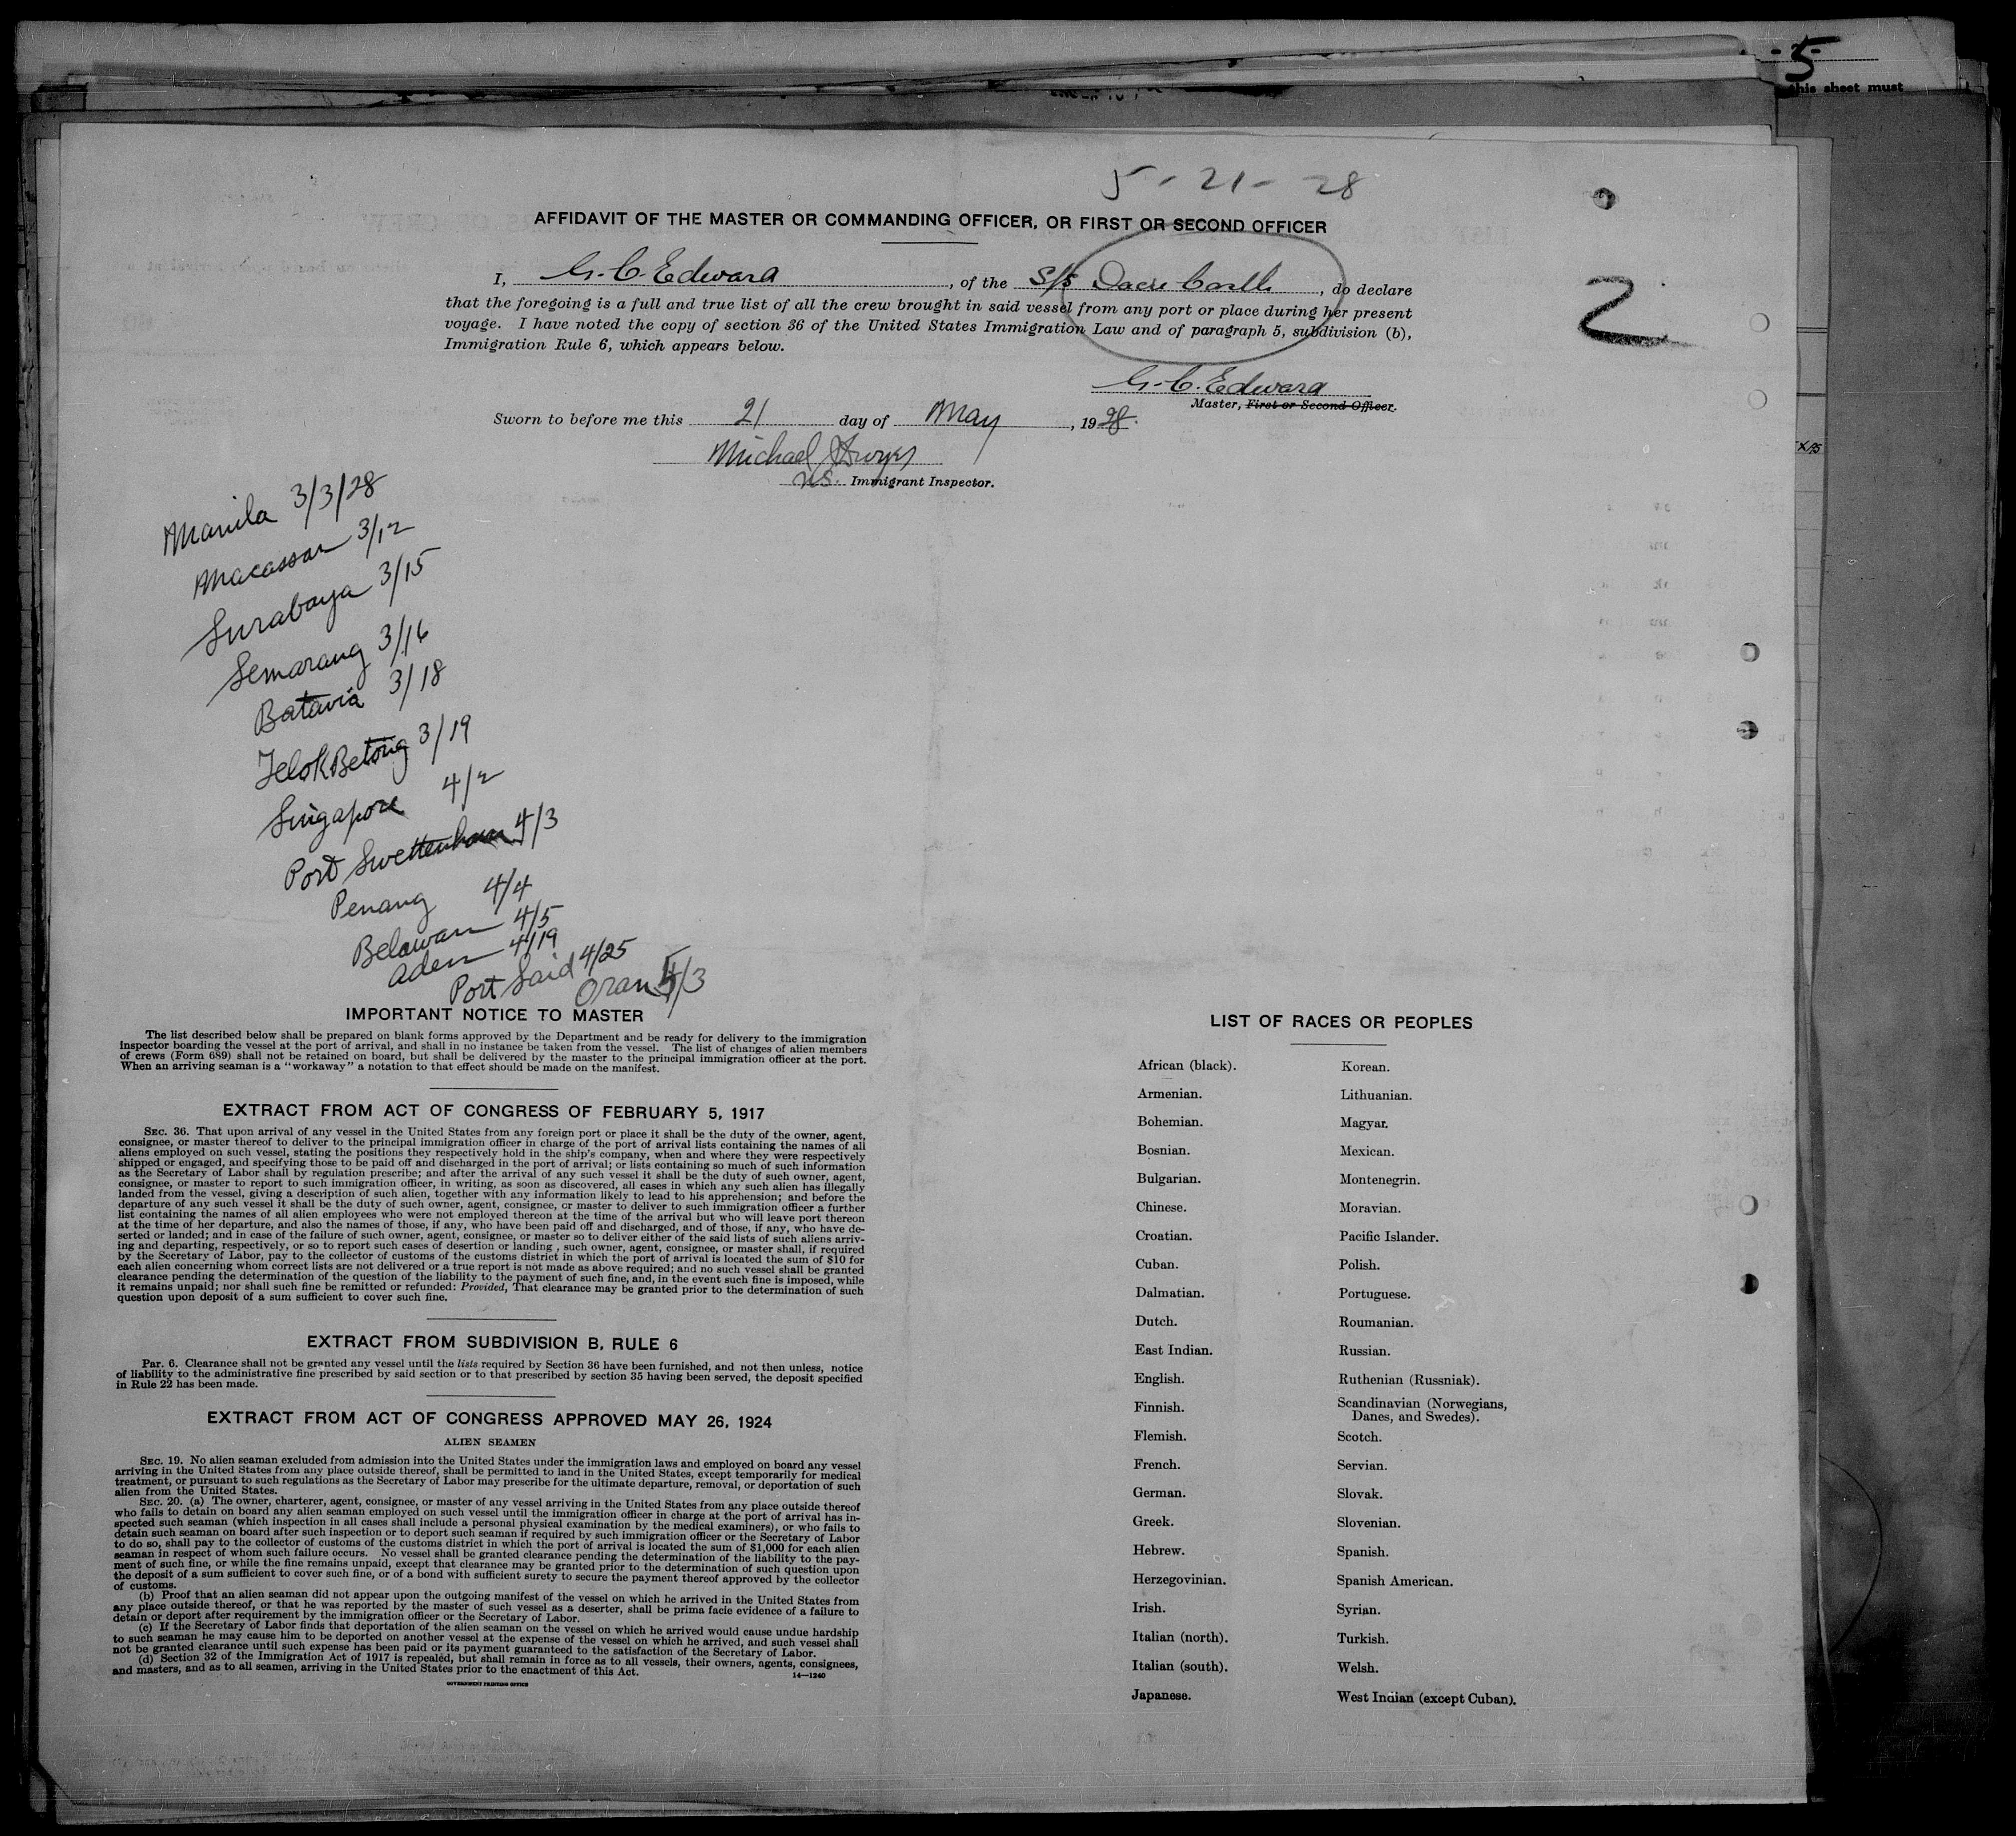 5
this sheet must
5-21-28
AFFIDAVIT OF THE MASTER OR COMMANDING OFFICER, OR FIRST OR SECOND OFFICER
I, G. C. Edward, of the S/S Dacre Castle, do declare
that the foregoing is a full and true list of all the crew brought in said vessel from any port or place during her present
voyage. I have noted the copy of section 36 of the United States Immigration Law and of paragraph 5, subdivision (b),
Immigration Rule 6, which appears below.
2
G. C. Edward
Master, First or Second Officer.
Sworn to before me this 21 day of May, 1928.
Michael
U.S. Immigrant Inspector.
Manila 3/3/28
Macassar 3/12
Surabaya 3/15
Semarang 3/16
Batavia 3/18
TelokBetong 3/19
Singapore 4/2
Port Swettenham 4/3
Penang 4/4
Belawan 4/5
Aden 4/19
Port Said 4/25
Oran 5/3
IMPORTANT NOTICE TO MASTER
The list described below shall be prepared on blank forms approved by the Department and be ready for delivery to the immigration
inspector boarding the vessel at the port of arrival, and shall in no instance be taken from the vessel. The list of changes of alien members
of crews (Form 689) shall not be retained on board, but shall be delivered by the master to the principal immigration officer at the port.
When an arriving seaman is a "workaway" a notation to that effect should be made on the manifest.
EXTRACT FROM ACT OF CONGRESS OF FEBRUARY 5, 1917
SEC. 36. That upon arrival of any vessel in the United States from any foreign port or place it shall be the duty of the owner, agent,
consignee, or master thereof to deliver to the principal immigration officer in charge of the port of arrival lists containing the names of all
aliens employed on such vessel, stating the positions they respectively hold in the ship's company, when and where they were respectively
shipped or engaged, and specifying those to be paid off and discharged in the port of arrival; or lists containing so much of such information
as the Secretary of Labor shall by regulation prescribe; and after the arrival of any such vessel it shall be the duty of such owner, agent,
consignee, or master to report to such immigration officer, in writing, as soon as discovered, all cases in which any such alien has illegally
landed from the vessel, giving a description of such alien, together with any information likely to lead to his apprehension; and before the
departure of any such vessel it shall be the duty of such owner, agent, consignee, or master to deliver to such immigration officer a further
list containing the names of all alien employees who were not employed thereon at the time of the arrival but who will leave port thereon
at the time of her departure, and also the names of those, if any, who have been paid off and discharged, and of those, if any, who have de-
serted or landed; and in case of the failure of such owner, agent, consignee, or master so to deliver either of the said lists of such aliens arriv-
ing and departing, respectively, or so to report such cases of desertion or landing , such owner, agent, consignee, or master shall, if required
by the Secretary of Labor, pay to the collector of customs of the customs district in which the port of arrival is located the sum of $10 for
each alien concerning whom correct lists are not delivered or a true report is not made as above required; and no such vessel shall be granted
clearance pending the determination of the question of the liability to the payment of such fine, and, in the event such fine is imposed, while
it remains unpaid; nor shall such fine be remitted or refunded: Provided, That clearance may be granted prior to the determination of such
question upon deposit of a sum sufficient to cover such fine.
EXTRACT FROM SUBDIVISION B, RULE 6
Par. 6. Clearance shall not be granted any vessel until the lists required by Section 36 have been furnished, and not then unless, notice
of liability to the administrative fine prescribed by said section or to that prescribed by section 35 having been served, the deposit specified
in Rule 22 has been made.
EXTRACT FROM ACT OF CONGRESS APPROVED MAY 26, 1924
ALIEN SEAMEN
SEC. 19. No alien seaman excluded from admission into the United States under the immigration laws and employed on board any vessel
arriving in the United States from any place outside thereof, shall be permitted to land in the United States, except temporarily for medical
treatment, or pursuant to such regulations as the Secretary of Labor may prescribe for the ultimate departure, removal, or deportation of such
alien from the United States.
SEC. 20. (a) The owner, charterer, agent, consignee, or master of any vessel arriving in the United States from any place outside thereof
who fails to detain on board any alien seaman employed on such vessel until the immigration officer in charge at the port of arrival has in-
spected such seaman (which inspection in all cases shall include a personal physical examination by the medical examiners), or who fails to
detain such seaman on board after such inspection or to deport such seaman if required by such immigration officer or the Secretary of Labor
to do so, shall pay to the collector of customs of the customs district in which the port of arrival is located the sum of $1,000 for each alien
seaman in respect of whom such failure occurs. No vessel shall be granted clearance pending the determination of the liability to the pay-
ment of such fine, or while the fine remains unpaid, except that clearance may be granted prior to the determination of such question upon
the deposit of a sum sufficient to cover such fine, or of a bond with sufficient surety to secure the payment thereof approved by the collector
of customs.
(b) Proof that an alien seaman did not appear upon the outgoing manifest of the vessel on which he arrived in the United States from
any place outside thereof, or that he was reported by the master of such vessel as a deserter, shall be prima facie evidence of a failure to
detain or deport after requirement by the immigration officer or the Secretary of Labor.
(c) If the Secretary of Labor finds that deportation of the alien seaman on the vessel on which he arrived would cause undue hardship
to such seaman he may cause him to be deported on another vessel at the expense of the vessel on which he arrived, and such vessel shall
not be granted clearance until such expense has been paid or its payment guaranteed to the satisfaction of the Secretary of Labor.
(d) Section 32 of the Immigration Act of 1917 is repealed, but shall remain in force as to all vessels, their owners, agents, consignees,
and masters, and as to all seamen, arriving in the United States prior to the enactment of this Act.
14—1240
GOVERNMENT PRINTING OFFICE
LIST OF RACES OR PEOPLES
African (black).
Armenian.
Bohemian.
Bosnian.
Bulgarian.
Chinese.
Croatian.
Cuban.
Dalmatian.
Dutch.
East Indian.
English.
Finnish.
Flemish.
French.
German.
Greek.
Hebrew.
Herzegovinian.
Irish.
Italian (north).
Italian (south).
Japanese.
Korean.
Lithuanian.
Magyar.
Mexican.
Montenegrin.
Moravian.
Pacific Islander.
Polish.
Portuguese.
Roumanian.
Russian.
Ruthenian (Russniak).
Scandinavian (Norwegians,
Danes, and Swedes).
Scotch.
Servian.
Slovak.
Slovenian.
Spanish.
Spanish American.
Syrian.
Turkish.
Welsh.
West Indian (except Cuban).